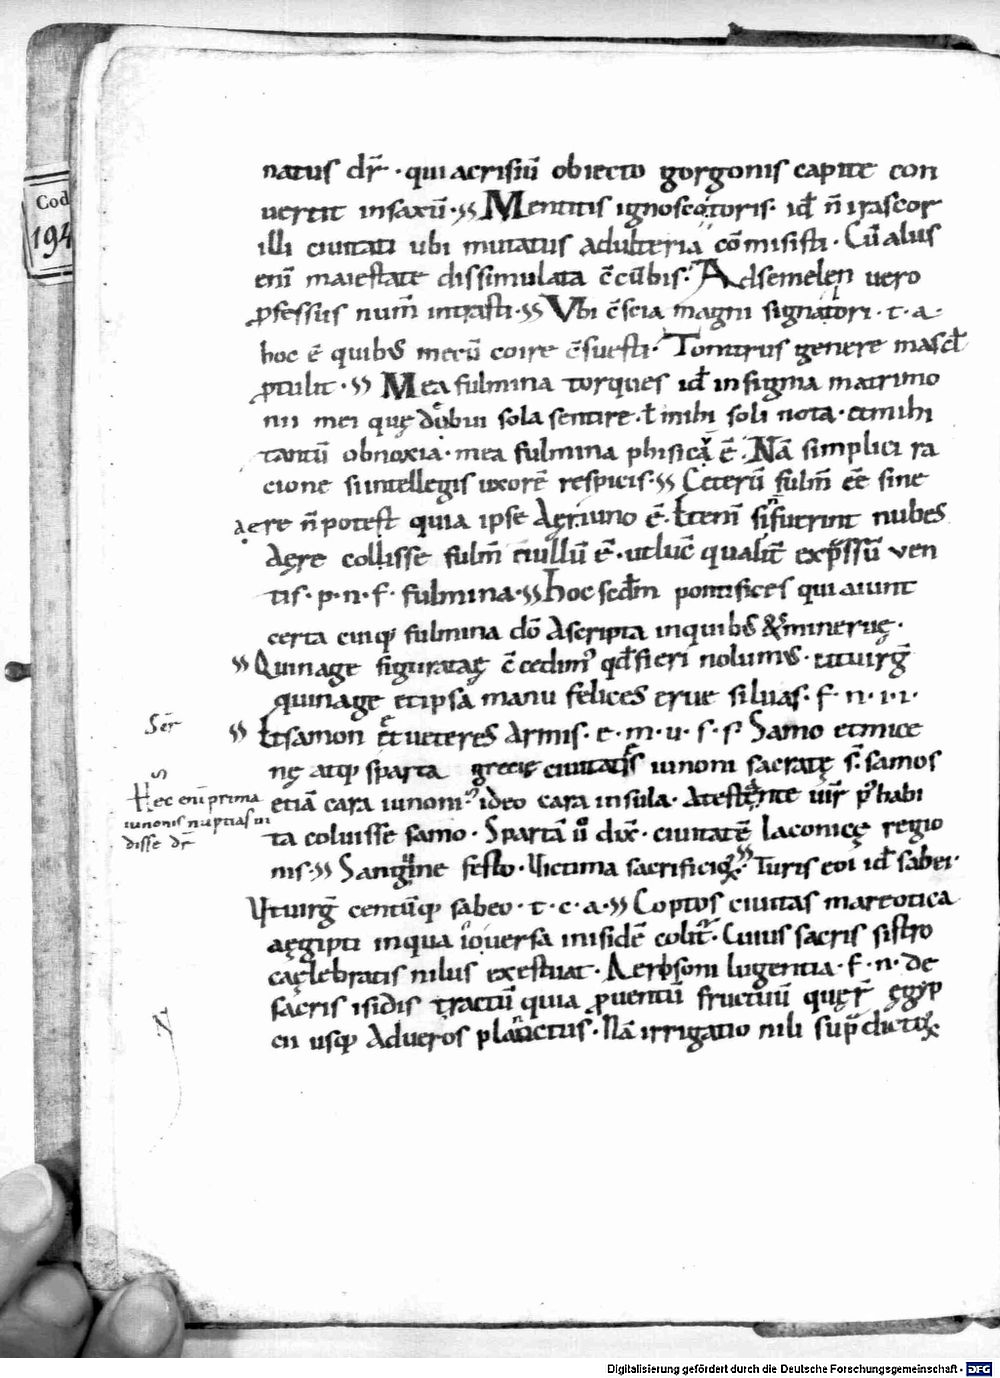 Cod
194
natus dr̄ · qui acrisiū obiecto gorgonis capite con
uertit insaxū · Mentitis ignoscatoris · id n̄ irascor
illi ciuitati ubi mutatus adulteria cōmisisti · Cū alius
enī maiestate dissimulata c̄cūbis · Adsemelen uero
ꝓfessus num̄ intrasti · Vbi c̄scia magni signatori · t · a ·
hoc ē quibus mecū coire c̄suesti · Tonitrus genere mascł
ꝓtulit · Mea fulmina torques id insigma matrimo
nii mei quę debui sola sentire · ł mihi soli nota · etmihi
tantū obnoxia · mea fulmina phisica ē · Nā simplici ra
cione siintellegis uxorē respicis · Ceterū fulm̄ eē sine
aere n̄ potest quia ipse aer iuno ē · Etenī si n̄ fuerint nubes
aere collisse fulm̄ nullū ē · utluc̄ qualit̄ exp̄ssū ven
tis · p · n · f · fulmina · hoc sedm̄ pontifices qui aiunt
certa cuiqꝫ fulmina dō ascripta inquibus & mineruę ·
Quinage figuratae c̄cedim qd fieri nolumus · utuirḡ
quinage etipsa manu felices erue siluas · f · n · i · i ·
Ser̄
Etsamon et ueteres armis · e · m · u · s · s · Samo etmice
nę atqꝫ sparta grecię ciuitates iunoni sacratę s̄ · samos
Hec enī prima
etiā cara iunoni ideo cara insula · Atestante uir p̄habi
iunonis nuptias ui
disse dr̄
ta coluisse samo · Spartā ů dix̄ · ciuitatē laconicę regio
nis · Sanguine festo · Victima sacrificioꝝ · Turis eoi id sabei ·
Vtuirḡ centūqꝫ sabeo · t · c · a · Coptos ciuitas mareotica
aegipti inqua io uersa inisidē colit̄ · Cuius sacris sistro
caelebratis nilus exestuat · Aerisoni lugentia · f · n · de
sacris isidis tractū quia ꝓuentū fructuū quęr̄ ęgyp
cii usqꝫ adueros planctus · Nā irrigatio nili sup̄dictoꝝ
Digitalisierung gefördert durch die Deutsche Forschungsgemeinschaft - DFG